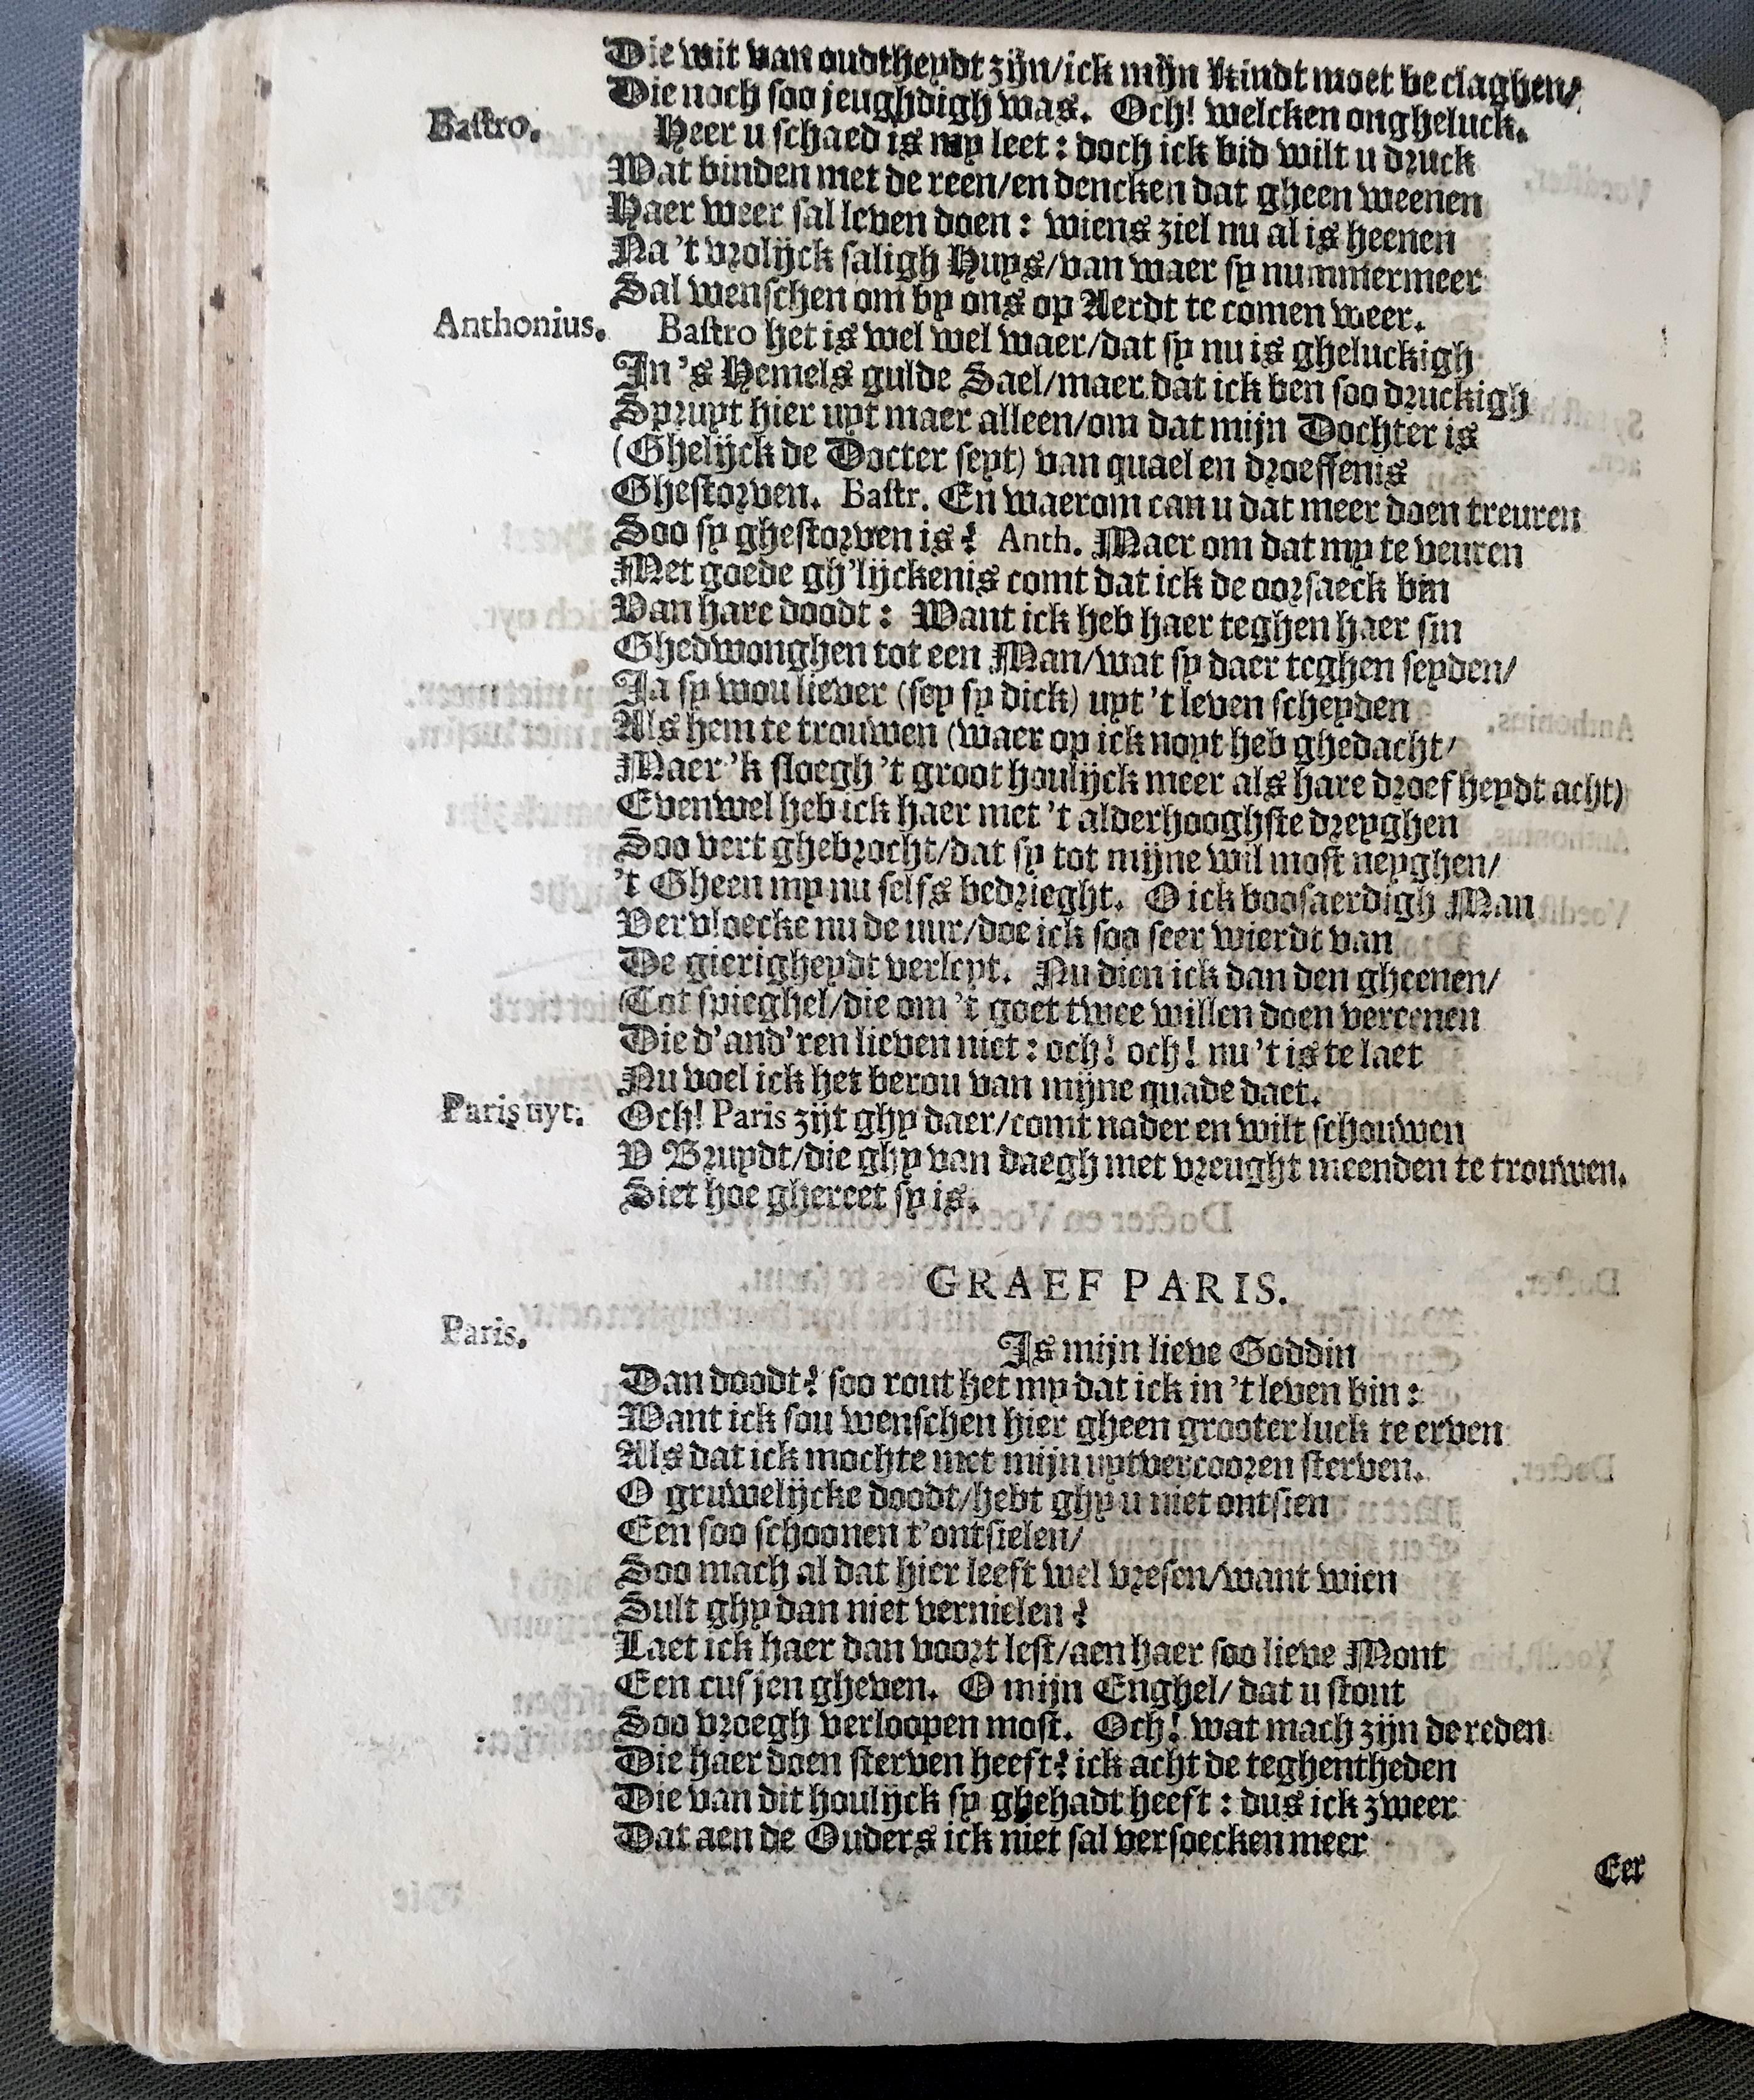 Die wit van oudtheydt zijn/ick mijn Kindt moet beclaghen/
Die noch soo jeughdigh was. Och! welcken ongheluck.
Bastro. Heer u schaed is my leet: doch ick bid wilt u druck
Wat binden met de reen/en dencken dat gheen weenen
Haer weer sal leven doen: wiens ziel nu al is heenen
Na 't vrolijck saligh Huys/van waer sy nummermeer
Sal wenschen om by ons op Aerdt te comen weer.
Anthonius. Bastro het is wel wel waer/dat sy nu is gheluckigh
In 's Hemels gulde Sael/maer dat ick ben soo druckigh
Spruyt hier uyt maer alleen/om dat mijn Dochter is
(Ghelijck de Docter seyt) van quael en droeffenis
Ghestorven. Bastr. En waerom can u dat meer doen treuren
Soo sy ghestorven is? Anth. Maer om dat my te veuren
Met goede gh'lijckenis comt dat ick de oorsaeck bin
Van hare doodt: Want ick heb haer teghen haer sin
Ghedwonghen tot een Man/wat sy daer teghen seyden/
Ja sy wou liever (sey sy dick) uyt 't leven scheyden
Als hem te trouwen (waer op ick noyt heb ghedacht/
Maer 'k sloegh 't groot houlijck meer als hare droefheydt acht)
Evenwel heb ick haer met 't alderhooghste dreyghen
Soo vert ghebrocht/dat sy tot mijne wil most neyghen/
't Gheen my nu selfs bedrieght. O ick boosaerdigh Man
Vervloecke nu de uur/doe ick soo seer wierdt van
De gierigheydt verleyt. Nu dien ick dan den gheenen/
Tot spieghel/die om 't goet twee willen doen vereenen
Die d'and'ren lieven niet: och! och! nu 't is te laet
Nu voel ick het berou van mijne quade daet.
Paris uyt. Och! Paris zijt ghy daer/comt nader en wilt schouwen
V Bruydt/die ghy van daegh met vreught meenden te trouwen.
Siet hoe ghereet sy is.
GRAEF PARIS.
Paris. Is mijn lieve Goddin
Dan doodt? soo rout het my dat ick in 't leven bin:
Want ick sou wenschen hier gheen grooter luck te erven
Als dat ick mochte met mijn uytvercooren sterven.
O gruwelijcke doodt/hebt ghy u niet ontsien
Een soo schoonen t'ontsielen/
Soo mach al dat hier leeft wel vresen/want wien
Sult ghy dan niet vernielen?
Laet ick haer dan voort lest/aen haer soo lieve Mont
Een cusjen gheven. O mijn Enghel/ dat u stont
Soo vroegh verloopen most. Och! wat mach zijn de reden
Die haer doen sterven heeft? ick acht de teghentheden
Die van dit houlijck sy ghehadt heeft: dus ick zweer
Dat aen de Ouders ick niet sal versoecken meer
Eer